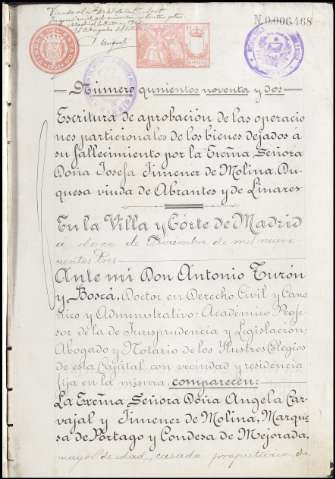 N.0.006,468
Numero quinientos noventa y dos
Escritura de aprobación de las operacio
nes particionales de los bienes dejados á
su fallecimiento por la Excma Señora
Doña Josefa Jimenez de Molina, Du-
quesa viuda de Abrantes y de Linares
En la Villa y Córte de Madrid
á doce de Diciembre de mil nove
cientos tres
Ante mi Don Antonio Turón
y Boscá, Doctor en Derecho Civil y Canó
nico y Administrativo: Academico Profe
sor de la de Jurisprudencia y Legislación,
Abogado y Notario de los Ilustres Colegios
de esta Capital con vecindad y residencia
fija en la misma comparecen:
La Excma Señora Doña Angela Car-
vajal y Jimenez de Molina, Marque
sa de Portago y Condesa de Mejorada,
mayor de edad, casada, propietaria de